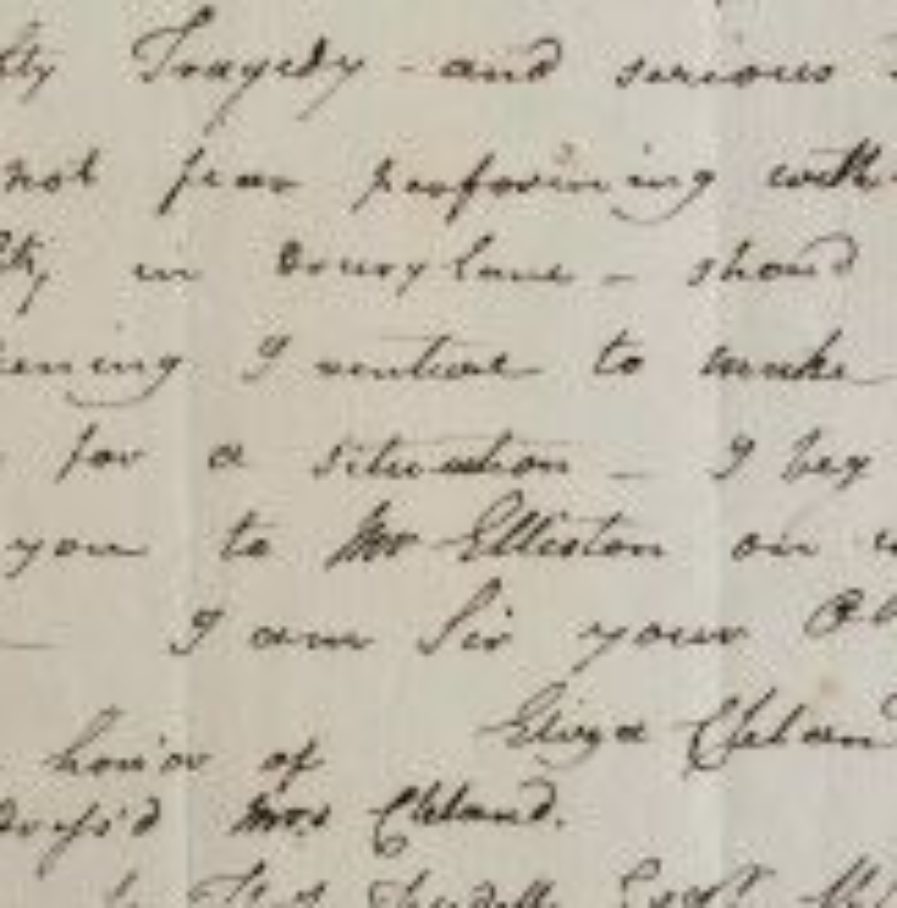 Tragedy - and serious
not fear performing with
in Drury lane - shoud
ening I venture to make
for a situation - I beg
you to Mr Elliston on
I am Sir your Ob
honor of Eliza Cleland
dress'd Mrs Cleland.